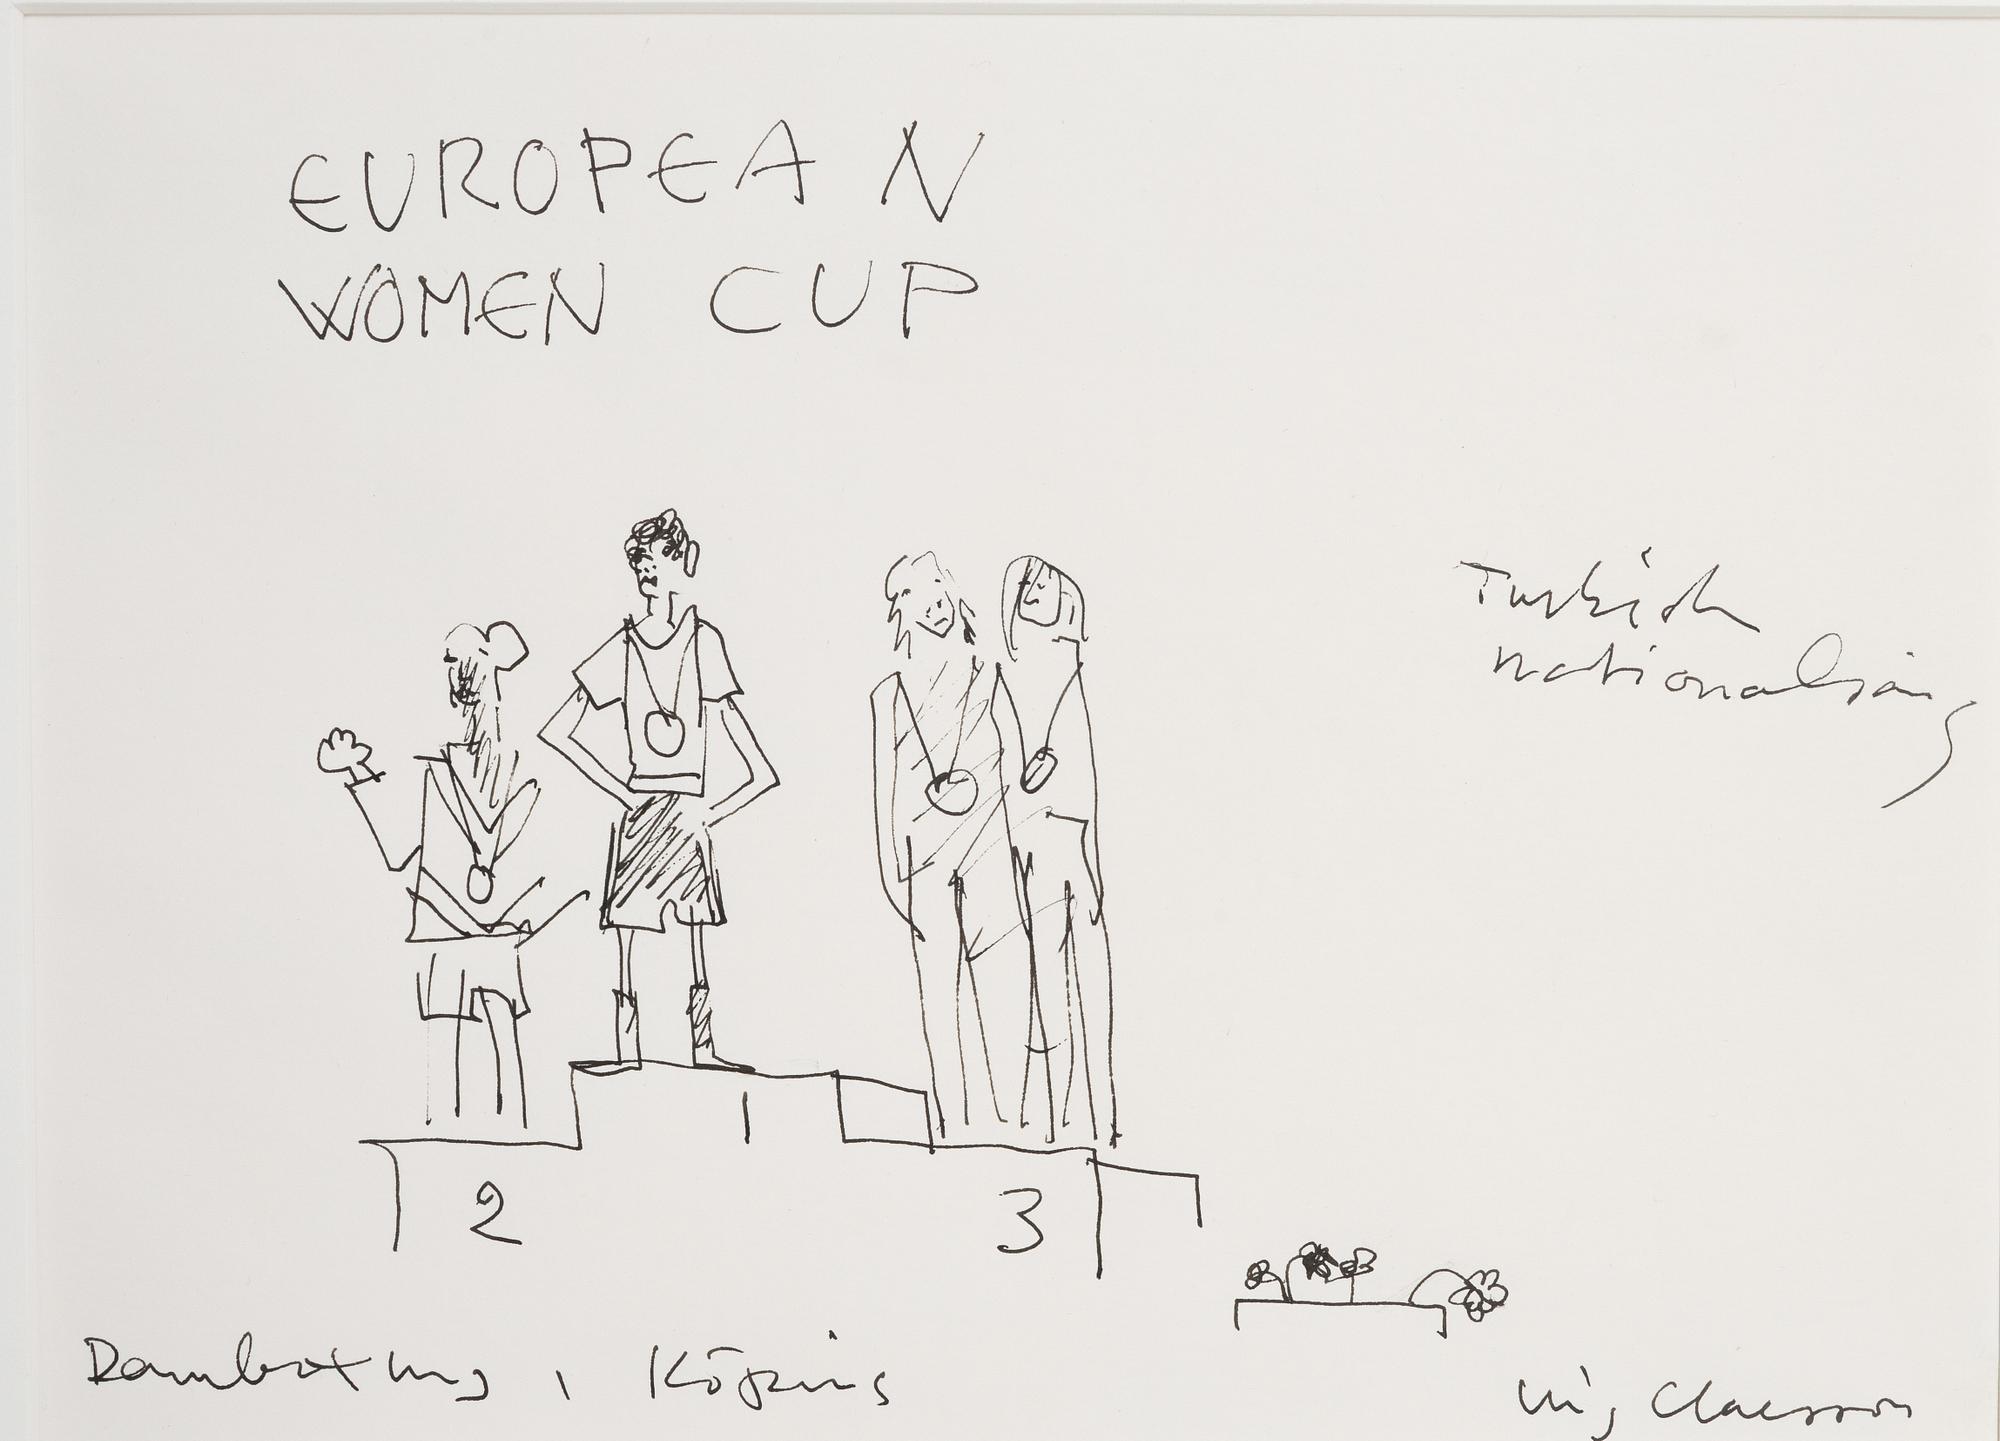 EUROPEAN
WOMEN CUP
Turkish
nationalsång
2
1
3
Damboxning i Köping
Stig Claesson